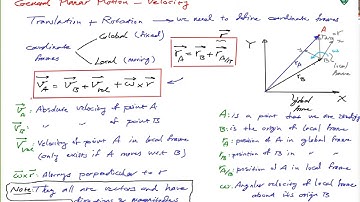 General Planar Motion - Velocity
Translation + Rotation → we need to define coordinate frames
coordinate frames
Global (fixed)
Local (moving)
r_A = r_B + r_A/B
V_A = V_B + V_rel + ω × r
V_A : Absolute velocity of point A
V_B : " " of point B
V_rel : Velocity of point A in local frame
(only exists if A moves wrt B)
ω×r : Always perpendicular to r
Note: They all are vectors and have
Y
A
r_A
r_B
B
local frame
X
global frame
A: is a point that we are
B: is the origin of local frame
r_A: position of A in global frame
r_B: position of B in
r_A/B: position of A in local frame
ω: Angular velocity of local frame
about its origin B